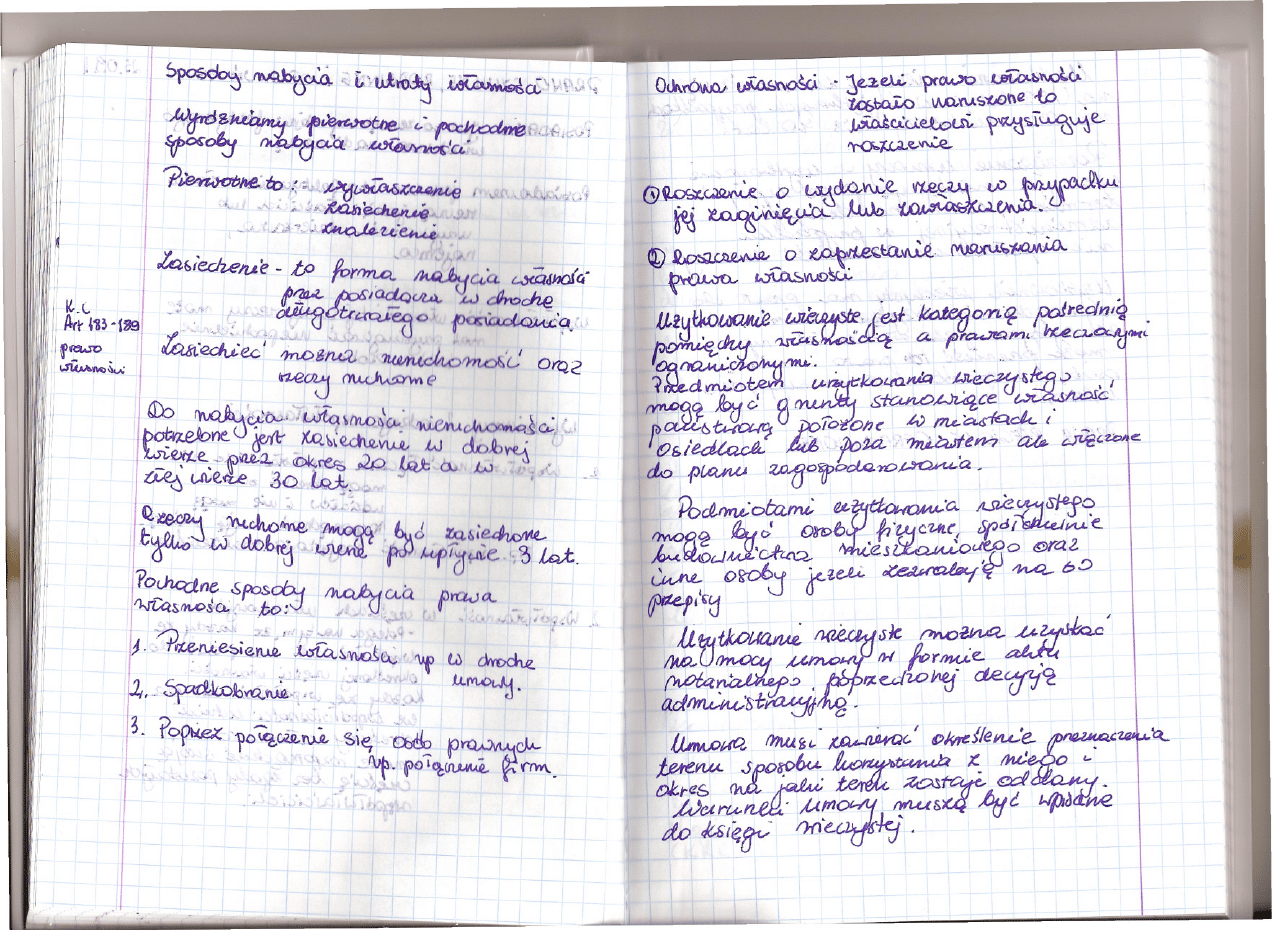 Sposoby nabycia i utraty własności
Wyróżniamy pierwotne i pochodne
sposoby nabycia własności
Pierwotne to: wywłaszczenie
zasiedzenie
znalezienie
Zasiedzenie - to forma nabycia własności
przez posiadacza w drodze
długotrwałego posiadania.
K.C
Art 183-189
prawo
własności
Zasiedzieć można nieruchomość oraz
rzeczy ruchome
Do nabycia własności nieruchomości
potrzebne jest zasiedzenie w dobrej
wierze przez okres 20 lat a w
złej wierze 30 lat.
Rzeczy ruchome mogą być zasiedzone
tylko w dobrej wierze po upływie 3 lat.
Pochodne sposoby nabycia prawa
własności to:
1. Przeniesienie własności np w drodze
umowy.
2. Spadkobranie
3. Poprzez połączenie się osób prawnych
np. połączenie firm.
Ochrona własności - Jeżeli prawo własności
zostało naruszone to
właścicielowi przysługuje
roszczenie
① Roszczenie o wydanie rzeczy w przypadku
jej zaginięcia lub zawłaszczenia.
② Roszczenie o zaprzestanie naruszania
prawa własności
Użytkowanie wieczyste jest kategorią pośrednią
pomiędzy własnością a prawami rzeczowymi
ograniczonymi.
Przedmiotem użytkowania wieczystego
mogą być grunty stanowiące własność
państwową położone w miastach i
osiedlach lub poza miastem ale włączone
do planu zagospodarowania.
Podmiotami użytkowania wieczystego
mogą być osoby fizyczne, spółdzielnie
budownictwa mieszkaniowego oraz
inne osoby jeżeli zezwalają na to
przepisy
Użytkowanie wieczyste można uzyskać
na mocy umowy w formie aktu
notarialnego poprzedzonej decyzją
administracyjną.
Umowa musi zawierać określenie przeznaczenia
terenu sposobu korzystania z niego i
okres na jaki teren zostaje oddany.
Warunki umowy muszą być wpisane
do księgi wieczystej.